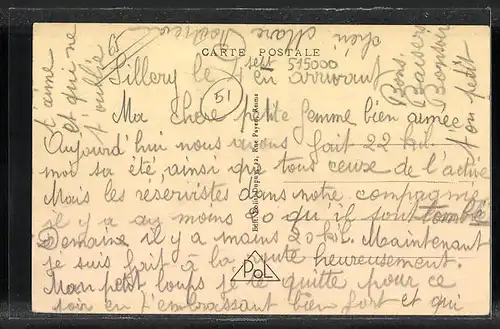 CARTE POSTALE
Sillery le sept 515000
en arrivant
51
Ma chere petite femme bien aimée
Aujourd'hui nous avons fait 22 kil.
moi sa été, ainsi que tous ceux de l'active
Mais les reservistes dans notre compagnie
il y a au moins 60 qu il sont tombé
Demain il y a moins 20 kil. Maintenant
je suis fait à la route heureusement.
Mon petit loups je te quitte pour ce
soir en t'embrassant bien fort et qui
t'aime
et qui ne
t'oublie
Bons
Baisers
Bonsoir
ton petit
chéri Marc
POL